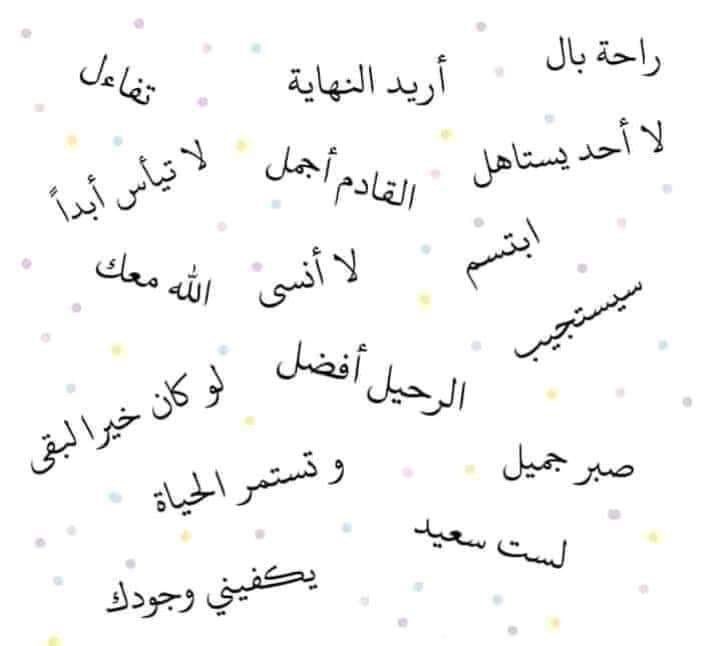 راحة بال
أريد النهاية
تفاءل
لا أحد يستاهل
القادم أجمل
لا تيأس أبداً
ابتسم
لا أنسى
الله معك
سيستجيب
الرحيل أفضل
لو كان خيرا لبقى
صبر جميل
و تستمر الحياة
لست سعيد
يكفيني وجودك